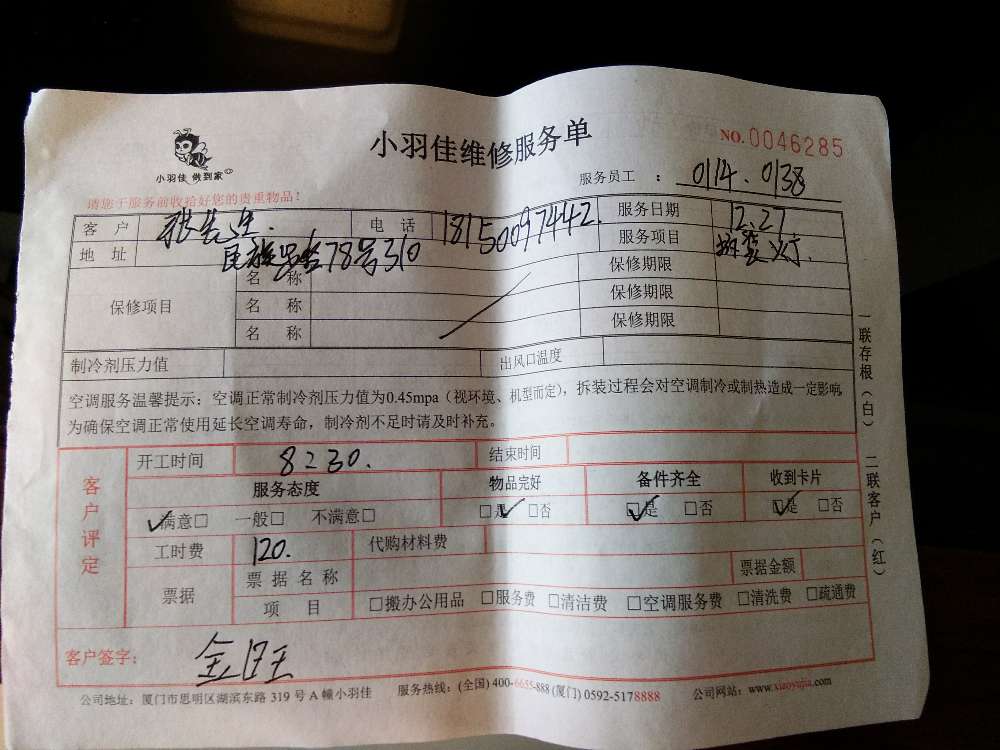 小羽佳 做到家
小羽佳维修服务单
NO.0046285
服务员工 : 0114.0138
请您于服务前收拾好您的贵重物品!
客户 张先生. 电话 18150097442. 服务日期 12.27
地址 78号310 服务项目 拆装灯.
保修项目 名称 保修期限
名称 保修期限
名称 保修期限
制冷剂压力值 出风口温度
空调服务温馨提示：空调正常制冷剂压力值为0.45mpa（视环境、机型而定），拆装过程会对空调制冷或制热造成一定影响，
为确保空调正常使用延长空调寿命，制冷剂不足时请及时补充。
客户评定
开工时间 8:30. 结束时间
服务态度 物品完好 备件齐全 收到卡片
✓满意□ 一般□ 不满意□ □是✓ □否 □✓是 □否 □✓是 □否
工时费 120. 代购材料费
票据 票据名称 票据金额
项目 □搬办公用品 □服务费 □清洁费 □空调服务费 □清洗费 □疏通费
客户签字:
公司地址：厦门市思明区湖滨东路 319 号 A 幢小羽佳 服务热线：(全国) 400-6655-888 (厦门) 0592-5178888 公司网站：www.xiaoyujia.com
一联存根（白） 二联客户（红）